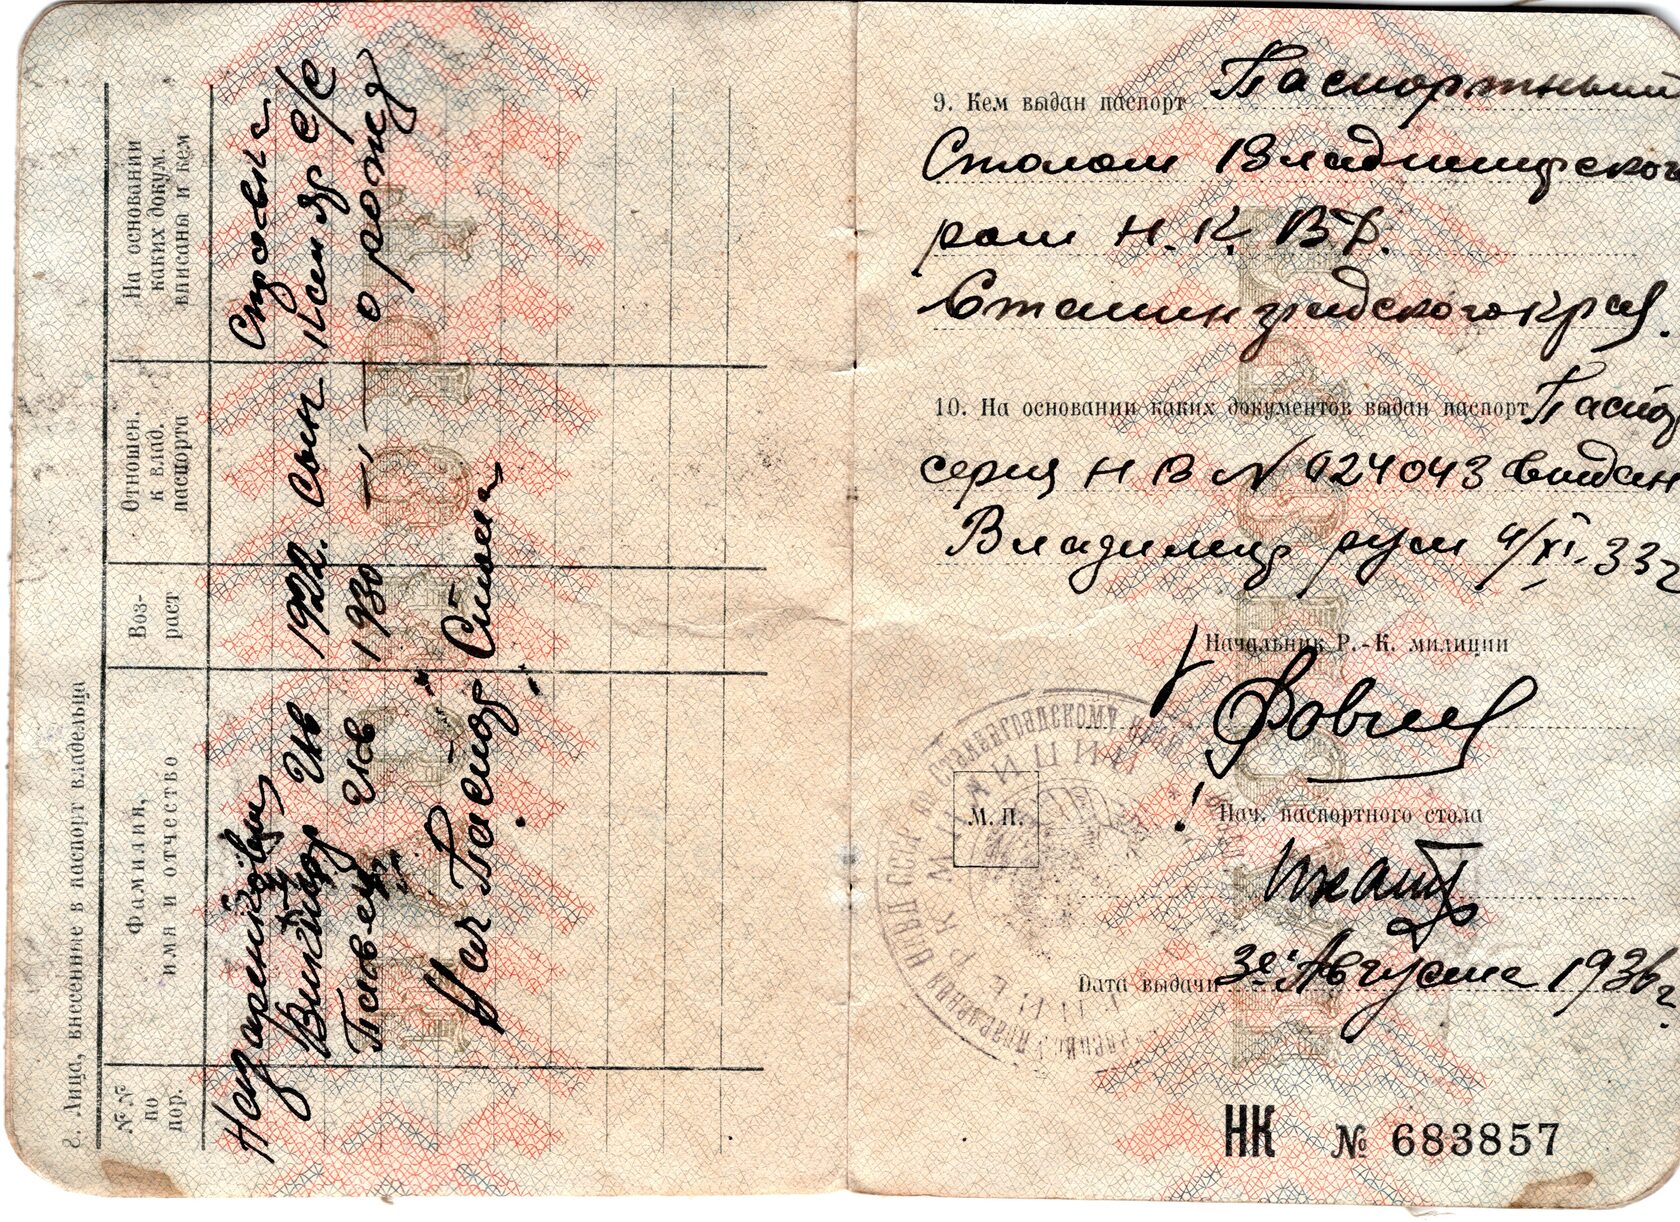 8. Лица, внесенные в паспорт владельца
№№ по пор.
Фамилия, имя и отчество
Воз-
раст
Отношен.
к влад.
паспорта
На основании
каких докум.
вписаны и кем
Справка
Виктор Ив 1922. Сын
Павел Ив 1930 — " — о рожд
Нач Паспор Стола
9. Кем выдан паспорт Паспортный
Столом Владимирского
ром Н.К.В.Д.
Сталинградского края.
10. На основании каких документов выдан паспорт Паспор
серии НВ N 024043 выдан
Владимир рум 4/XI.33г
Начальник Р.-К. милиции
М. П.
Нач. паспортного стола
Дата выдачи 3го Августа 1936г.
НК № 683857